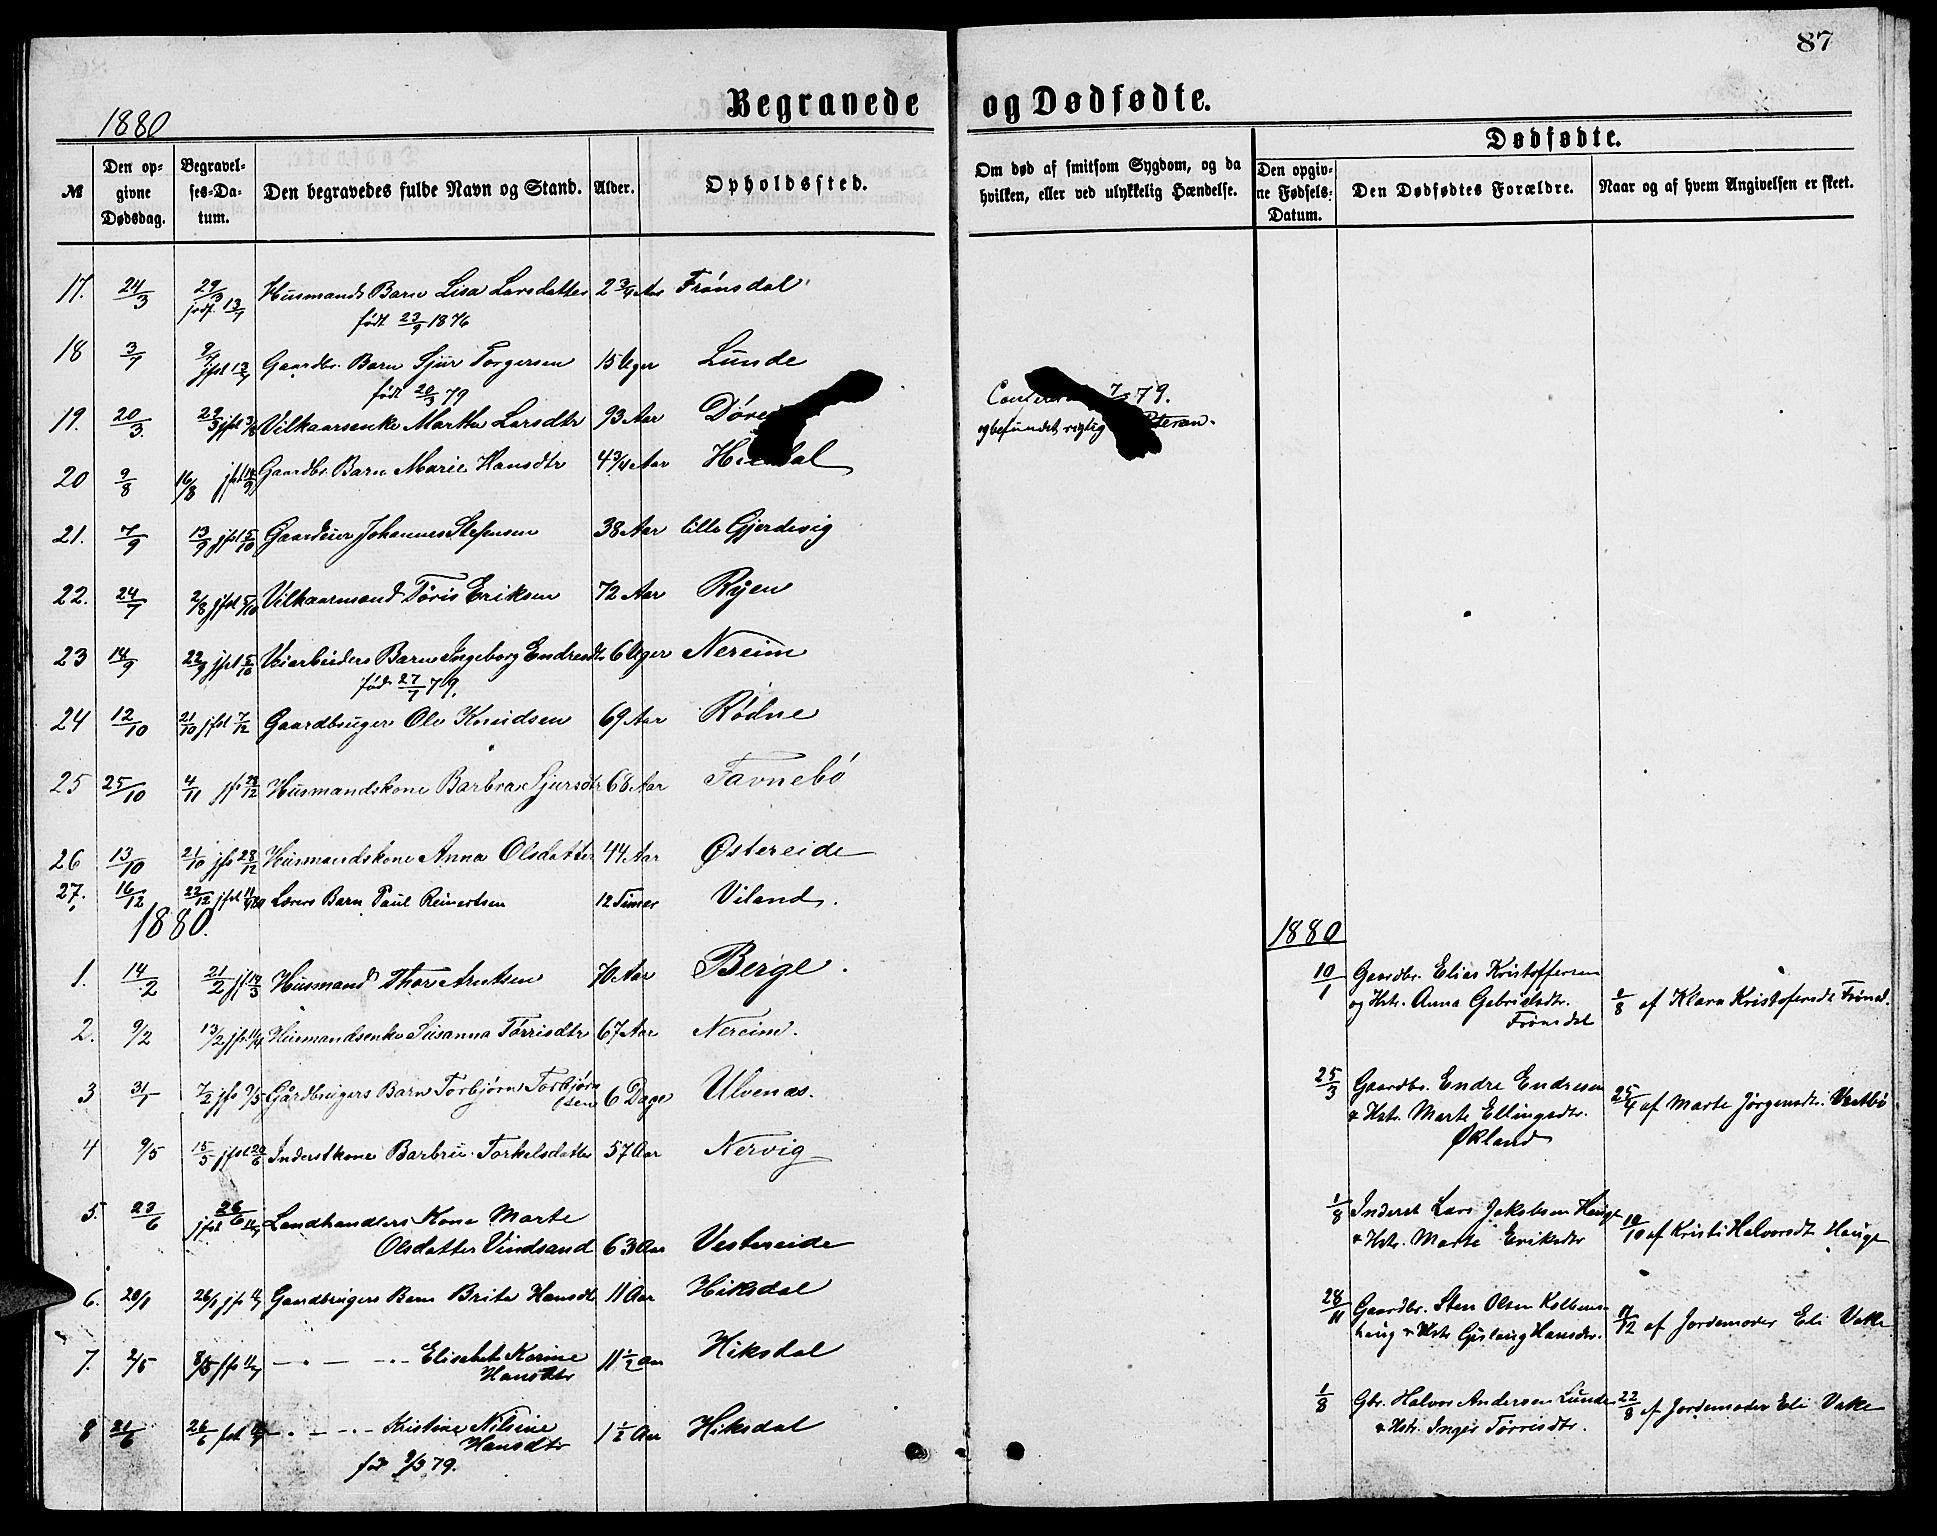 87
1880
Begravede og Dødfødte.
Dødfødte.
№
Den opgivne Dødsdag.
Begravelses-Datum.
Den begravedes fulde Navn og Stand.
Alder.
Opholdssted.
Om død af smitsom Sygdom, og da hvilken, eller ved ulykkelig Hændelse.
Den opgivne Fødsels-Datum.
Den Dødfødtes Forældre.
Naar og af hvem Angivelsen er skeet.
17. 24/3 29/3 Husmands Barn Lisa Larsdatter 2 3/4 Aar Frønsdal
født 23/9 1876
18 3/7 9/7 jfst 13/7 Gaardbr. Barn Sjur Torgersen 15 Uger Lunde
født 20/3 79
19. 20/3. 29/3 jfst 3/8 Vilkaarsenke Martha Larsdtr 93 Aar
7/79.
og befundet rigtig
20 9/8 16/8 jfst 14/9 Gaardbr. Barn Marie Hansdtr 4 3/4 Aar
21. 7/9 13/9 jfst 5/10 Gaardeier Johannes Stefensen 38 Aar lille Gjerdevig
22. 24/7 2/8 jfst 5/10 Vilkaarmand Tøris Eriksen 72 Aar Ryen
23 14/9 22/9 jfst 5/10 Veiarbeiders Barn Ingeborg Endresdtr 6 Uger Nereim
født 27/7 79.
24 12/10 21/10 jfst 7/12 Gaardbruger Ole Knudsen 69 Aar Rødne
25 25/10 4/11 jfst 28/12 Husmandskone Barbra Sjursdtr 68 Aar Favnebø
26 13/10 21/10 jfst 28/12 Husmandskone Anna Olsdatter 44 Aar Østereide
27. 16/12 22/12 jfst Lærers Barn Paul Reinertsen 12 Timer Viland.
1880.
1880
1. 14/2 21/2 jf 14/3 Husmand Thore Arntsen 70 Aar Berge.
10/1 Gaardbr. Elias Kristoffersen
og Hstr. Anna Gabrielsdtr.
Frønsdal
1/8 af Klara Kristofersdt Frønsd.
2. 9/2 13/2 jfst 11/4 Husmandsenke Susanna Tørrisdtr 67 Aar Nereim.
3 31/1 7/2 jfst 9/5 Gårdbrugers Barn Torbjørn Torbjørnsen 6 Dage Ulvenæs.
25/3 Gaardbr. Endre Endresen
& Hstr. Marte Ellingsdtr.
Økland
25/4 af Marte Jørgensdtr. Vestbø
4 9/5 15/5 jfst 20/6 Inderstkone Barbru Torkelsdatter 57 Aar Nervig
5. 23/6 26/6 jfst Landhandlers Kone Marte
Olsdatter Vindsand 63 Aar Vestereide
1/8 Inderst Lars Jakobsen Hauge
& Hstr. Marta Eriksdtr
10/10 af Kristi Halvorsdt Hauge
6. 20/1 26/1 jfst Gaardbrugers Barn Brita Hansdtr 11 Aar Hiksdal
28/11 Gaardbr. Sten Olsen Kolbens
haug & Hstr Gislaug Hansdtr.
11/12 af Jordemoder Eli Vake
7. 2/5 8/5 jfst — . — — . . Elisabet Karine
Hansdtr 11 1/2 Aar Hiksdal
8 21/6 26/6 jfst — . — — . . Kristine Nilsine
Hansdtr 1 1/2 Aar Hiksdal
fød 9/3 79.
1/8 Gbr. Halvor Andersen Lunde
& Hstr. Inger Tørrisdtr.
22/8 af Jordemoder Eli Vake